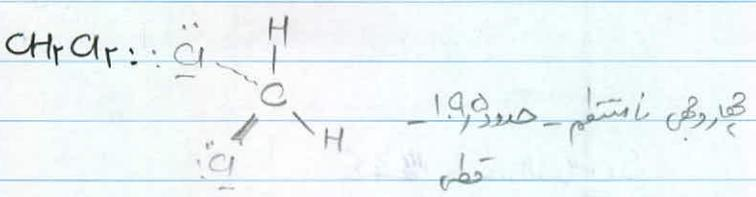 CH۲Cl۲:
H
Cl
C
H
Cl
چهاروجهی نامنتظم - حدود ۱۰۹٫۵ -
قطبی